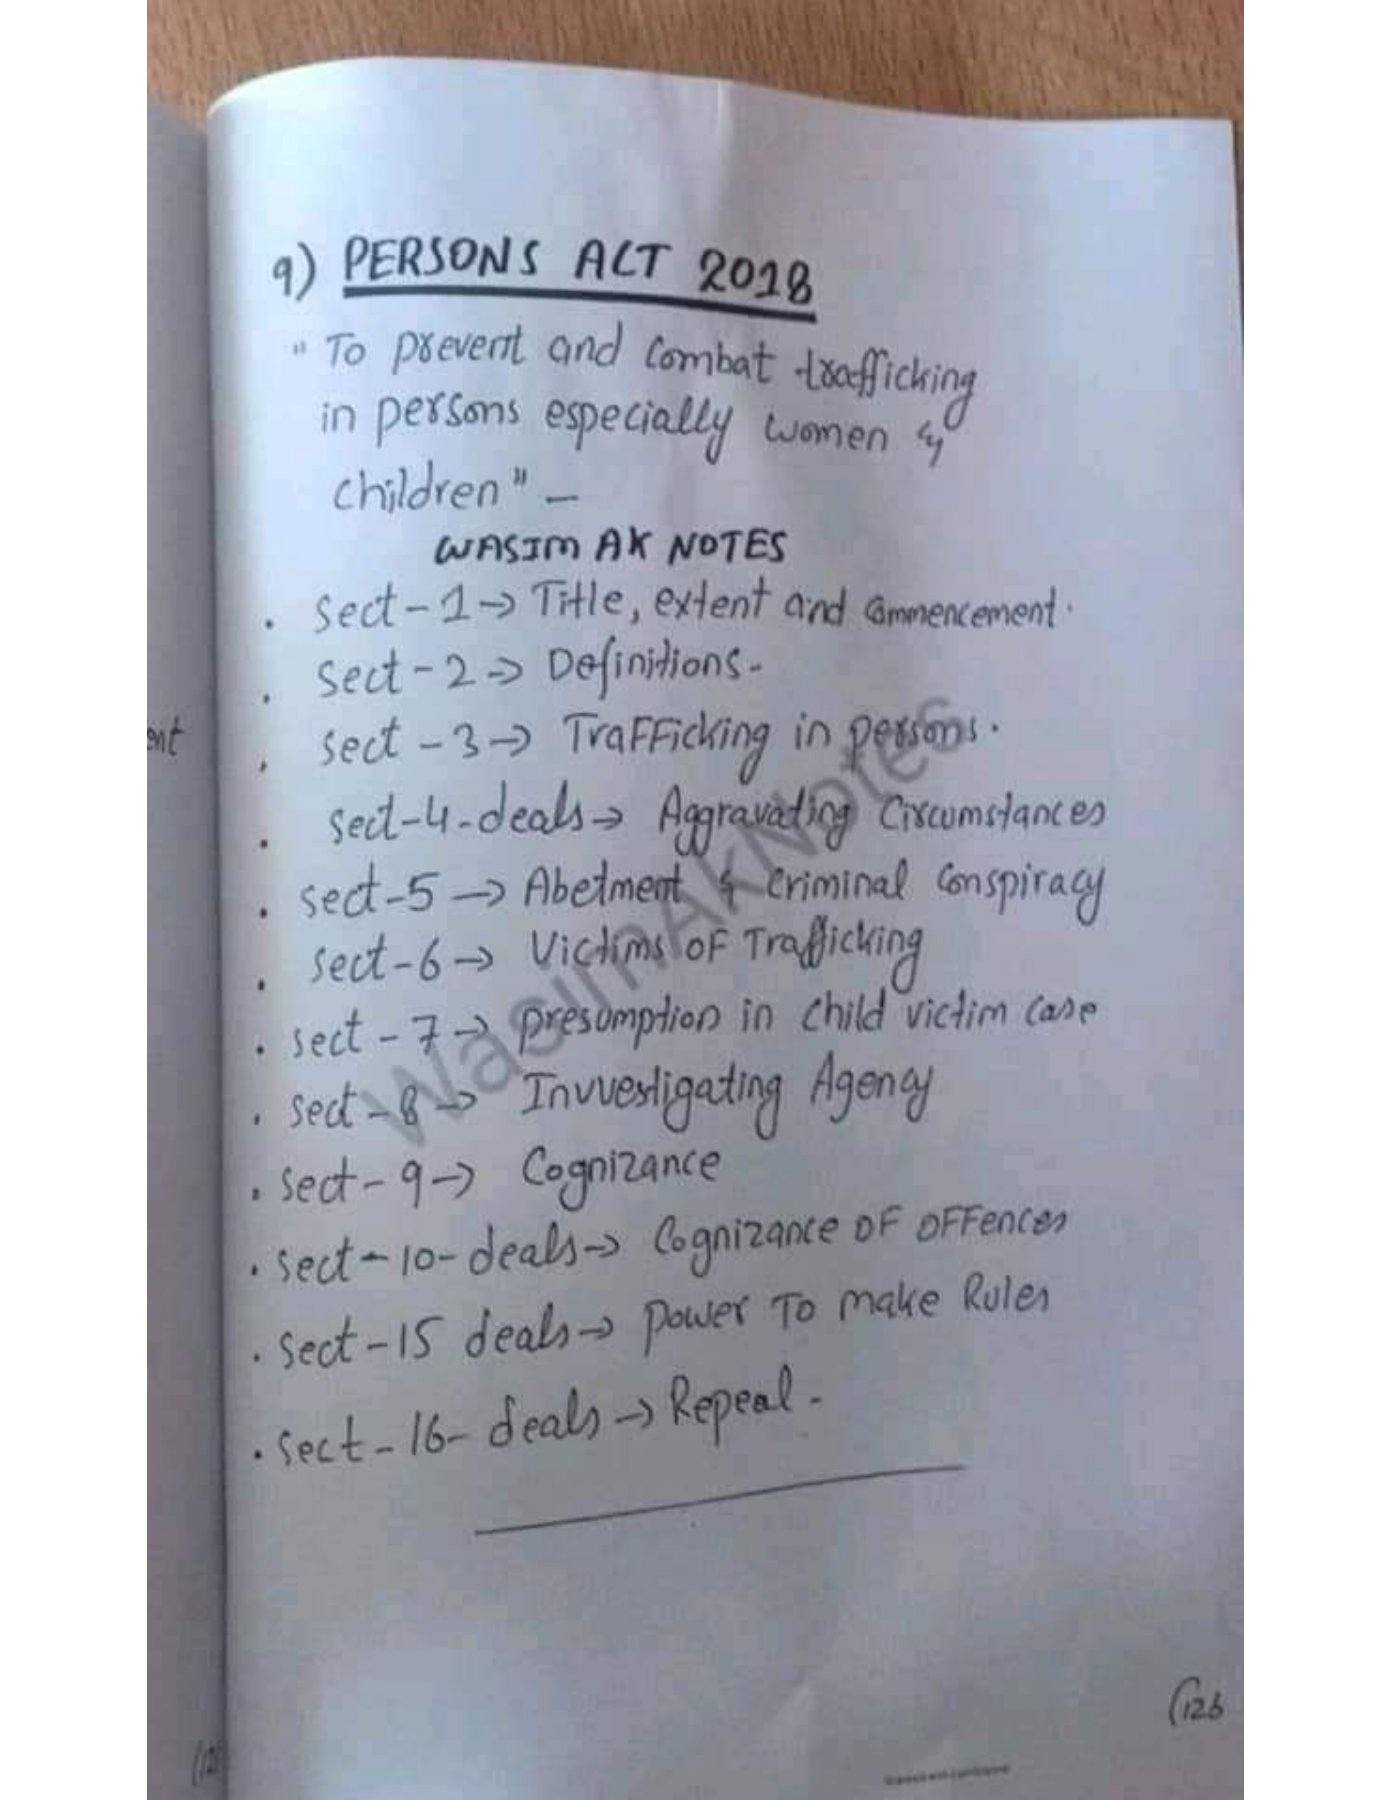 9) PERSONS ACT 2018
" To prevent and combat trafficking
in persons especially women &
children" -
WASIM AK NOTES
. Sect - 1 → Title, extent and commencement.
. Sect - 2 → Definitions -
. sect - 3 → Trafficking in persons.
. sect-4-deals → Aggravating Circumstances
. sect-5 → Abetment & criminal conspiracy
. sect-6 → Victims of Trafficking
. sect - 7 → presumption in child victim case
. sect - 8 → Invvestigating Agency
. sect - 9 → Cognizance
. sect - 10 - deals → Cognizance of offences
. sect - 15 deals → power To make Rules
. sect - 16 - deals → Repeal -
WasimAkNotes
ent
(126